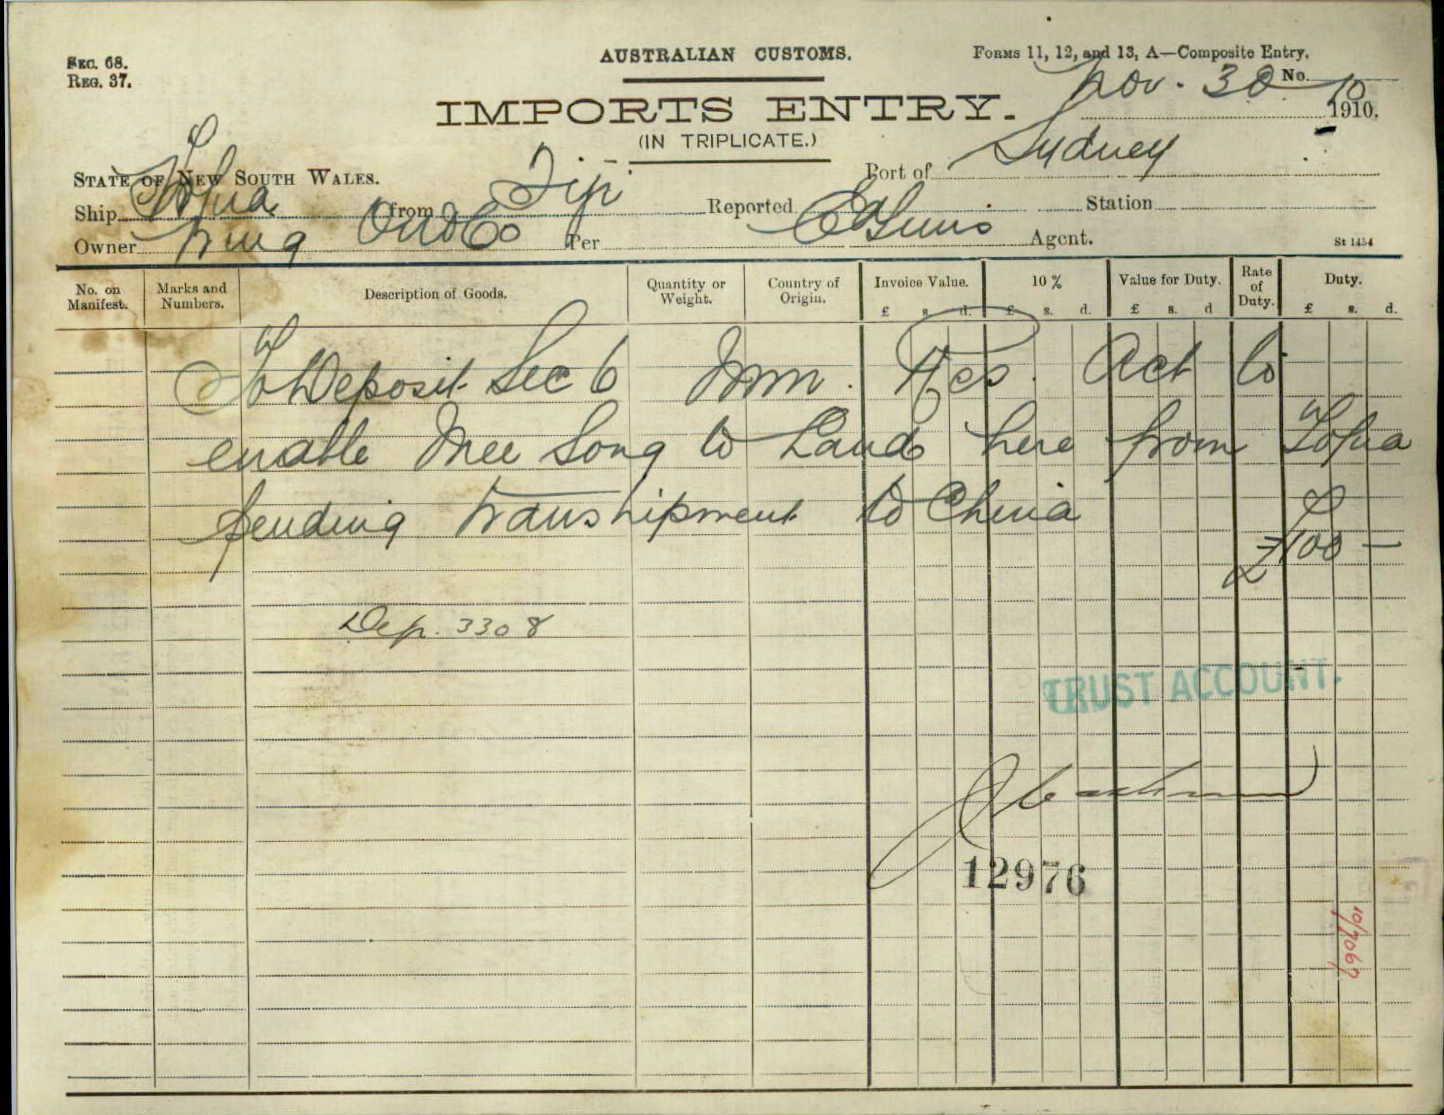 SEC. 68.
REG. 37.
AUSTRALIAN CUSTOMS.
FORMS 11, 12, and 13, A—Composite Entry.
Nov. 30 No. 10
1910.
IMPORTS ENTRY.
(IN TRIPLICATE.)
STATE OF NEW SOUTH WALES.
Port of Sydney
Ship Tofua from Fiji Reported Station
Owner On & Co Per Agent.
St 1454
No. on Manifest.
Marks and Numbers.
Description of Goods.
Quantity or Weight.
Country of Origin.
Invoice Value.
10 %
Value for Duty.
Rate of Duty.
Duty.
£ s. d. £ s. d. £ s. d £ s. d.
To Deposit Sec 6 Imm. Res. Act to
enable Mee Song to Land here from Tofua
pending transhipment to China
£100 —
Dep. 3308
TRUST ACCOUNT.
12976
10/7067